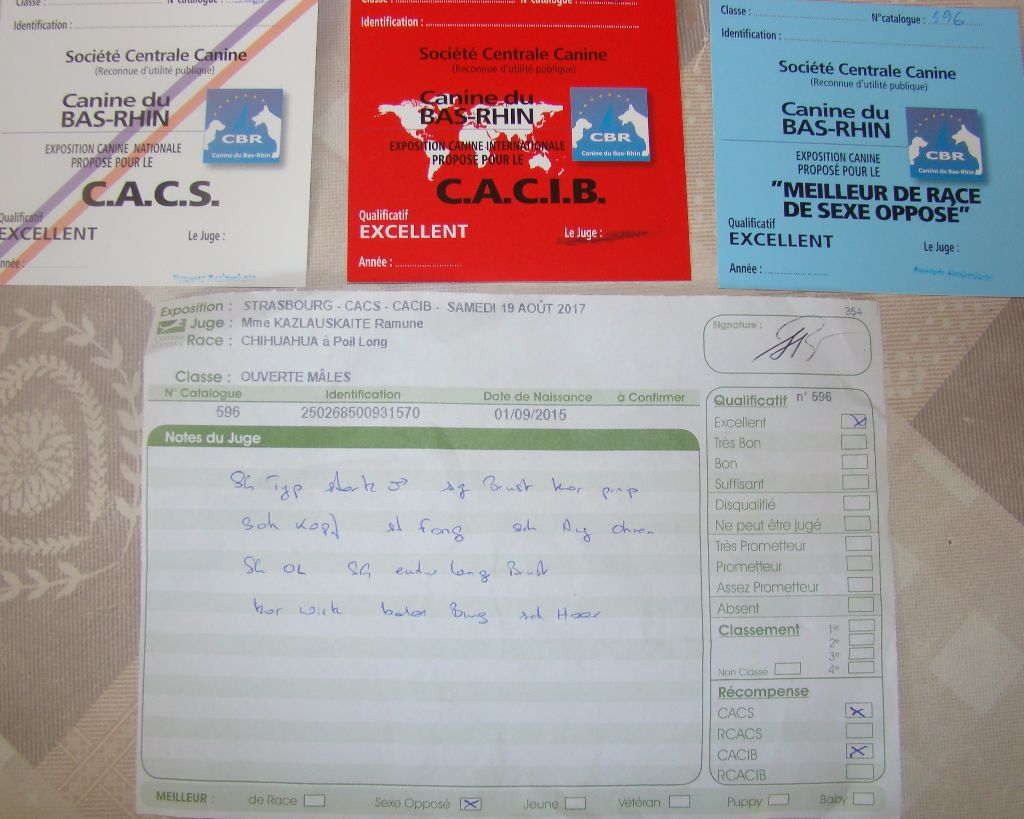 Classe :
N°catalogue :
Identification :
Société Centrale Canine
(Reconnue d'utilité publique)
Canine du
BAS-RHIN
CBR
Canine du Bas-Rhin
EXPOSITION CANINE NATIONALE
PROPOSÉ POUR LE
C.A.C.S.
Qualificatif
EXCELLENT
Le Juge :
Année :
Classe :
N°catalogue :
Identification :
Société Centrale Canine
(Reconnue d'utilité publique)
Canine du
BAS-RHIN
CBR
Canine du Bas-Rhin
EXPOSITION CANINE INTERNATIONALE
PROPOSÉ POUR LE
C.A.C.I.B.
Qualificatif
EXCELLENT
Le Juge :
Année :
Classe :
N°catalogue : 596
Identification :
Société Centrale Canine
(Reconnue d'utilité publique)
Canine du
BAS-RHIN
CBR
Canine du Bas-Rhin
EXPOSITION CANINE
PROPOSÉ POUR LE
"MEILLEUR DE RACE
DE SEXE OPPOSÉ"
Qualificatif
EXCELLENT
Le Juge :
Année :
Exposition : STRASBOURG - CACS - CACIB - SAMEDI 19 AOÛT 2017
354
Juge : Mme KAZLAUSKAITE Ramune
Signature :
Race : CHIHUAHUA à Poil Long
Classe : OUVERTE MÂLES
N° Catalogue Identification Date de Naissance à Confirmer
596 250268500931570 01/09/2015
Notes du Juge
Sh Typ stark ♂ sg Brust kor
Sch Kopf Fang sch Aug Ohren
Sh OL SG lang Brust
kor sch Haar
Qualificatif n° 596
Excellent
Très Bon
Bon
Suffisant
Disqualifié
Ne peut être jugé
Très Prometteur
Prometteur
Assez Prometteur
Absent
Classement 1er
2e
3e
Non Classé 4e
Récompense
CACS
RCACS
CACIB
RCACIB
MEILLEUR : de Race Sexe Opposé Jeune Vétéran Puppy Baby